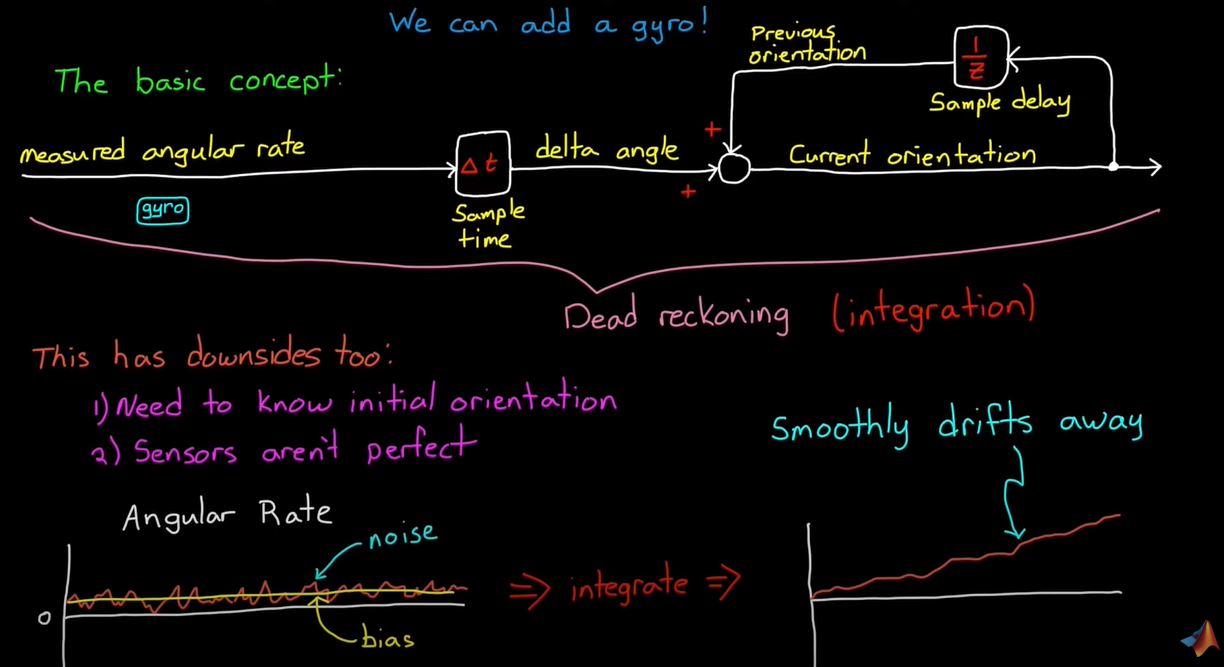 We can add a gyro!
The basic concept:
Previous
orientation
1
z
Sample delay
measured angular rate
Δt
delta angle
+
+
Current orientation
gyro
Sample
time
Dead reckoning (integration)
This has downsides too:
1) Need to know initial orientation
2) Sensors aren't perfect
Smoothly drifts away
Angular Rate
noise
0
⇒ integrate ⇒
bias